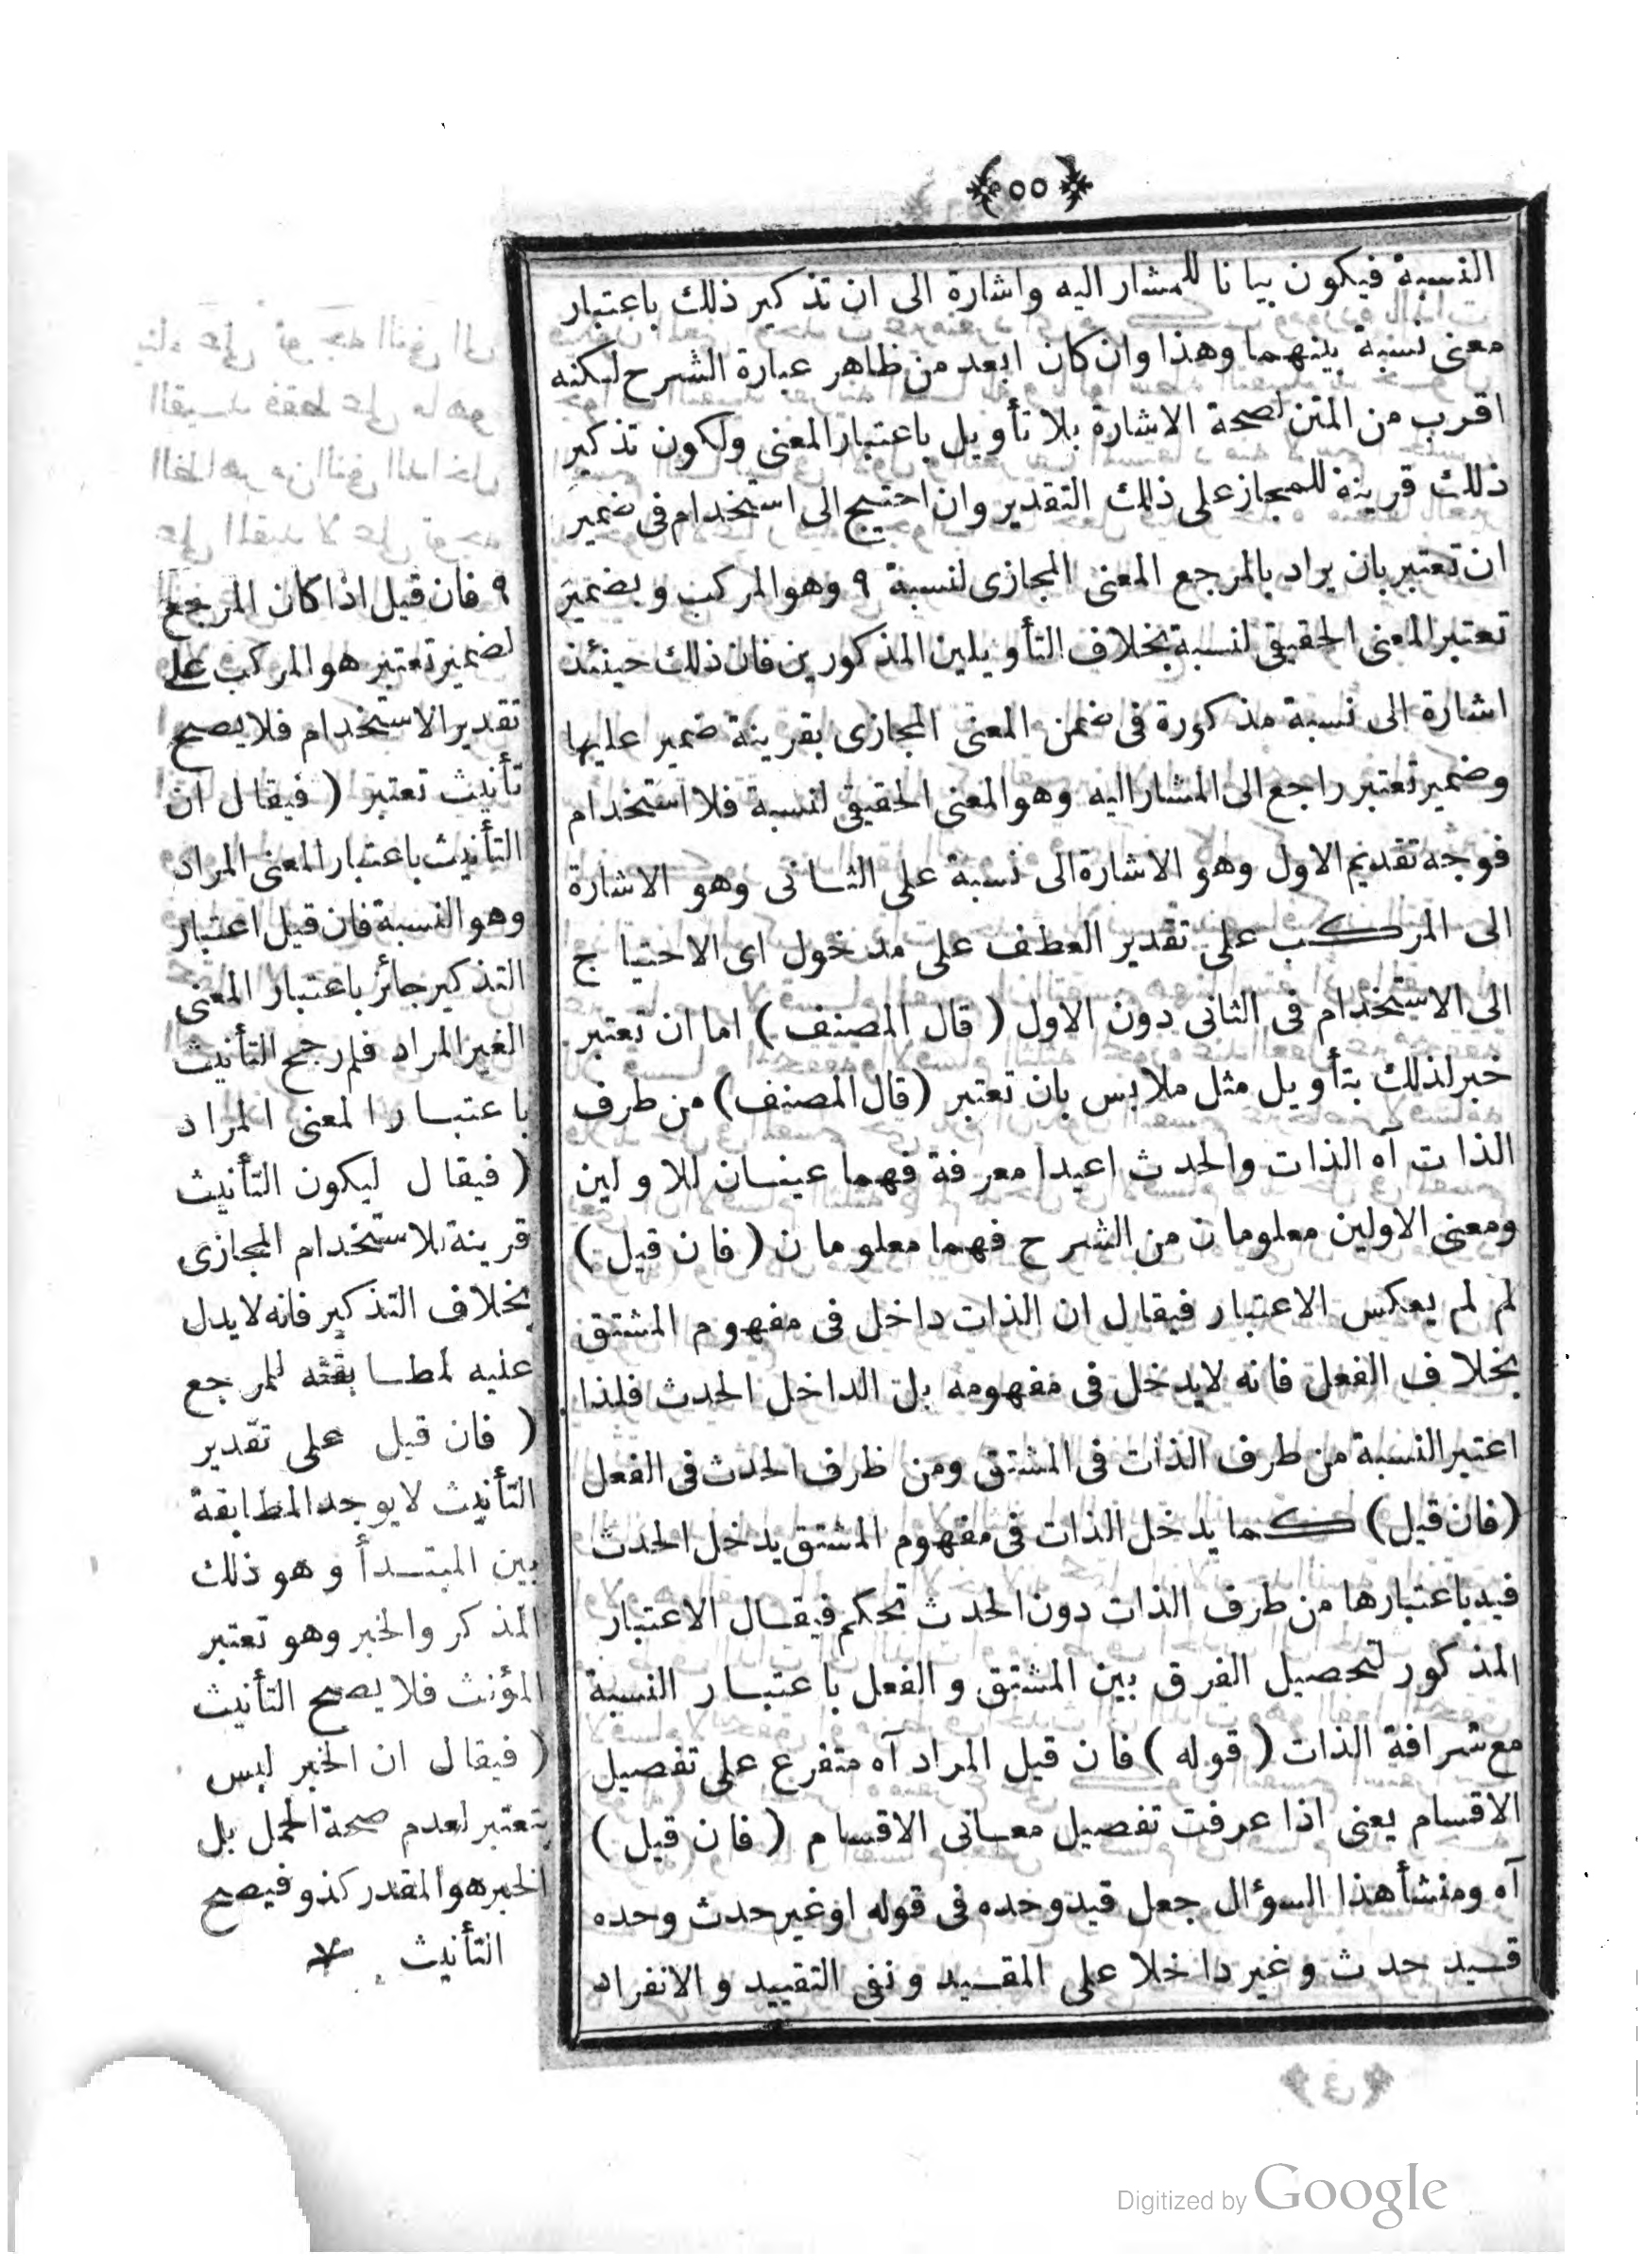 ﴿٥٥﴾
النسبة فيكون بيانا للمشار اليه واشارة الى ان تذكير ذلك باعتبار
معنى نسبة بينهما وهذا وان كان ابعد من ظاهر عبارة الشرح لكنه
اقرب من المتن لصحة الاشارة بلا تأويل باعتبار المعنى ولكون تذكير
ذلك قرينة للمجاز على ذلك التقدير وان احتيج الى استخدام فى ضمير
ان تعتبر بان يراد بالمرجع المعنى المجازى لنسبة ٩ وهو المركب وبضمير
تعتبر المعنى الحقيقى لنسبة بخلاف التأويلين المذكورين فان ذلك حينئذ
اشارة الى نسبة مذكورة فى ضمن المعنى المجازى بقرينة ضمير عليها
وضمير تعتبر راجع الى المشار اليه وهو المعنى الحقيقى لنسبة فلا استخدام
فوجه تقديم الاول وهو الاشارة الى نسبة على الثانى وهو الاشارة
الى المركب على تقدير العطف على مدخول اى الاحتياج
الى الاستخدام فى الثانى دون الاول ( قال المصنف ) اما ان تعتبر
خبر لذلك بتأويل مثل ملابس بان تعتبر ( قال المصنف ) من طرف
الذات آه الذات والحدث اعيدا معرفة فهما عينان للاولين
ومعنى الاولين معلومان من الشرح فهما معلومان ( فان قيل )
لم لم يعكس الاعتبار فيقال ان الذات داخل فى مفهوم المشتق
بخلاف الفعل فانه لايدخل فى مفهومه بل الداخل الحدث فلذا
اعتبر النسبة من طرف الذات فى المشتق ومن ظرف الحدث فى الفعل
( فان قيل ) كما يدخل الذات فى مفهوم المشتق يدخل الحدث
فيد باعتبارها من طرف الذات دون الحدث تحكم فيقال الاعتبار
المذكور لتحصيل الفرق بين المشتق والفعل باعتبار النسبة
مع شرافة الذات ( قوله ) فان قيل المراد آه متفرع على تفصيل
الاقسام يعنى اذا عرفت تفصيل معانى الاقسام ( فان قيل )
آه ومنشأ هذا السؤال جعل قيد وحده فى قوله او غير حدث وحده
قيد حدث وغير داخلا على المقيد ونفى التقييد والانفراد
٩ فان قيل اذا كان المرجع
لضمير تعتبر هو المركب على
تقدير الاستخدام فلا يصح
تأنيث تعتبر ( فيقال ان
التأنيث باعتبار المعنى المراد
وهو النسبة فان قيل اعتبار
التذكير جائز باعتبار المعنى
الغير المراد فلم رجح التأنيث
باعتبار المعنى المراد
( فيقال ليكون التأنيث
قرينة للاستخدام المجازى
بخلاف التذكير فانه لايدل
عليه لمطابقته للمرجع
( فان قيل على تقدير
التأنيث لايوجد المطابقة
بين المبتدأ وهو ذلك
المذكر والخبر وهو تعتبر
المؤنث فلا يصح التأنيث
( فيقال ان الخبر ليس
بتعتبر لعدم صحة الحمل بل
الخبر هو المقدر كذو فيصح
التأنيث
Digitized by Google